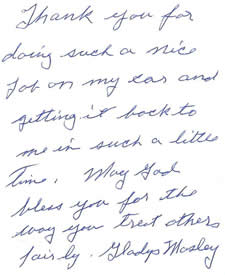 Thank you for
doing such a nice
job on my car and
getting it back to
me in such a little
time. May God
bless you for the
way you treat others
fairly. Gladys Mosley